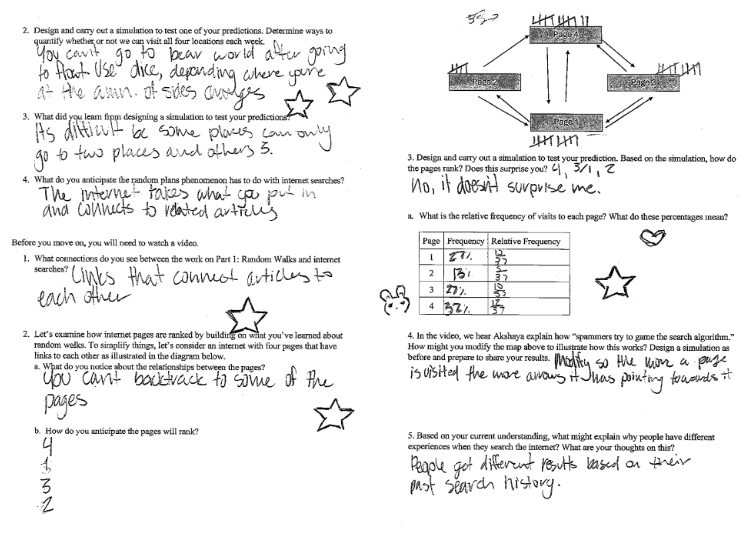 2. Design and carry out a simulation to test one of your predictions. Determine ways to
quantify whether or not we can visit all four locations each week.
You can't go to bear world after going
to float Use dice, depending where you're
at the amn. of sides changes
3. What did you learn from designing a simulation to test your predictions?
Its difficult bc some places can only
go to two places and others 3.
4. What do you anticipate the random plans phenomenon has to do with internet searches?
The internet takes what you put in
and connects to related articles
Before you move on, you will need to watch a video.
1. What connections do you see between the work on Part 1: Random Walks and internet
searches?
Links that connect articles to
each other
2. Let's examine how internet pages are ranked by building on what you've learned about
random walks. To simplify things, let's consider an internet with four pages that have
links to each other as illustrated in the diagram below.
a. What do you notice about the relationships between the pages?
You cant backtrack to some of the
pages
b. How do you anticipate the pages will rank?
4
1
3
2
Page 4
Page 2
Page 3
Page 1
3. Design and carry out a simulation to test your prediction. Based on the simulation, how do
the pages rank? Does this surprise you? 4, 3/1, 2
No, it doesn't surprise me.
a. What is the relative frequency of visits to each page? What do these percentages mean?
Page Frequency Relative Frequency
1 27%
2 13%
3 27%
4 32% 12/37
4. In the video, we hear Akshaya explain how "spammers try to game the search algorithm."
How might you modify the map above to illustrate how this works? Design a simulation as
before and prepare to share your results. Modify so the more a page
is visited the more arrows it has pointing towards it
5. Based on your current understanding, what might explain why people have different
experiences when they search the internet? What are your thoughts on this?
People get different results based on their
past search history.